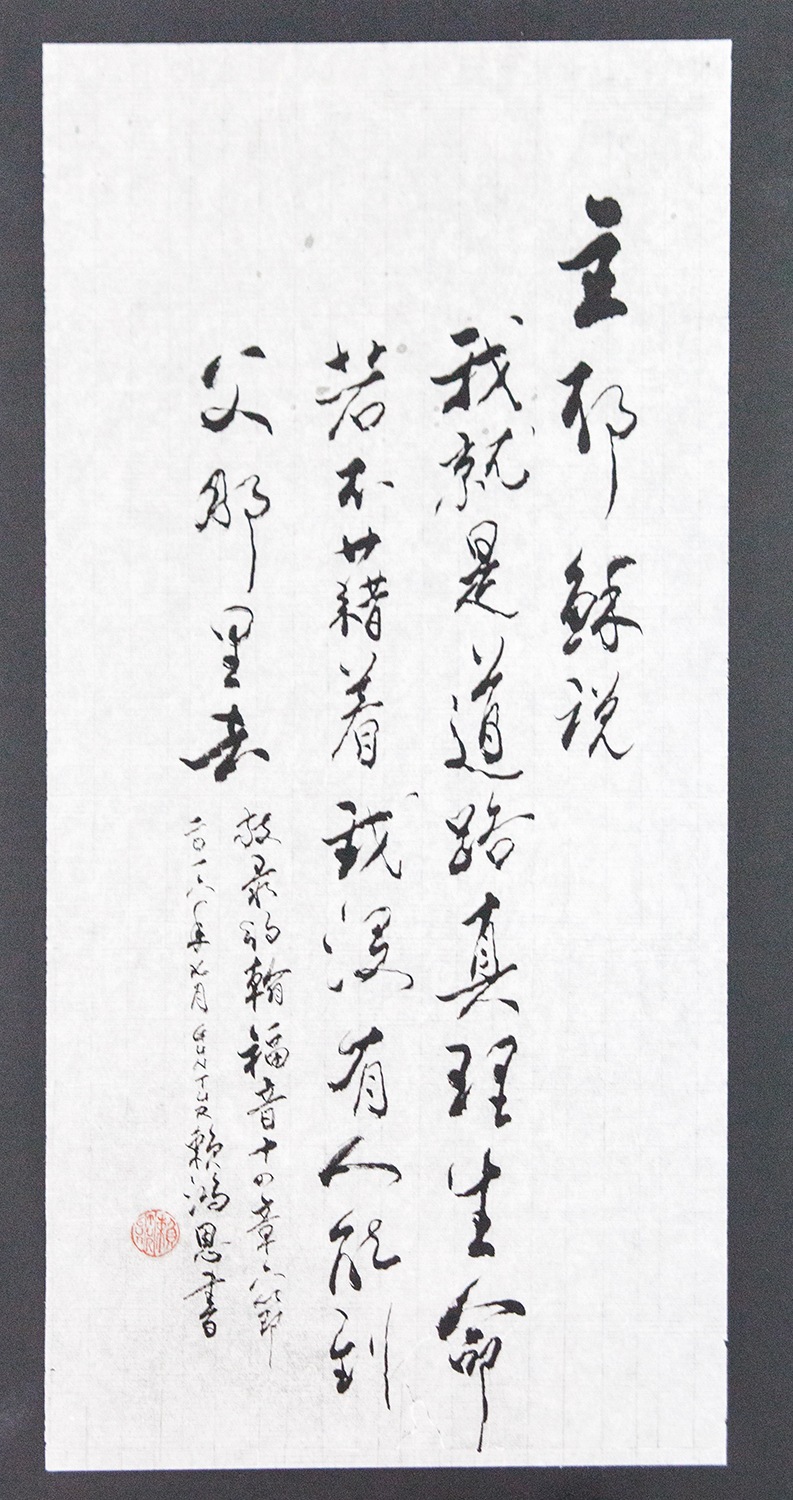 主耶稣说
我就是道路真理生命
若不藉着我没有人能到
父那里去
敬录约翰福音十四章六节
二〇一六年七月 GUNTUR 赖鸿恩書